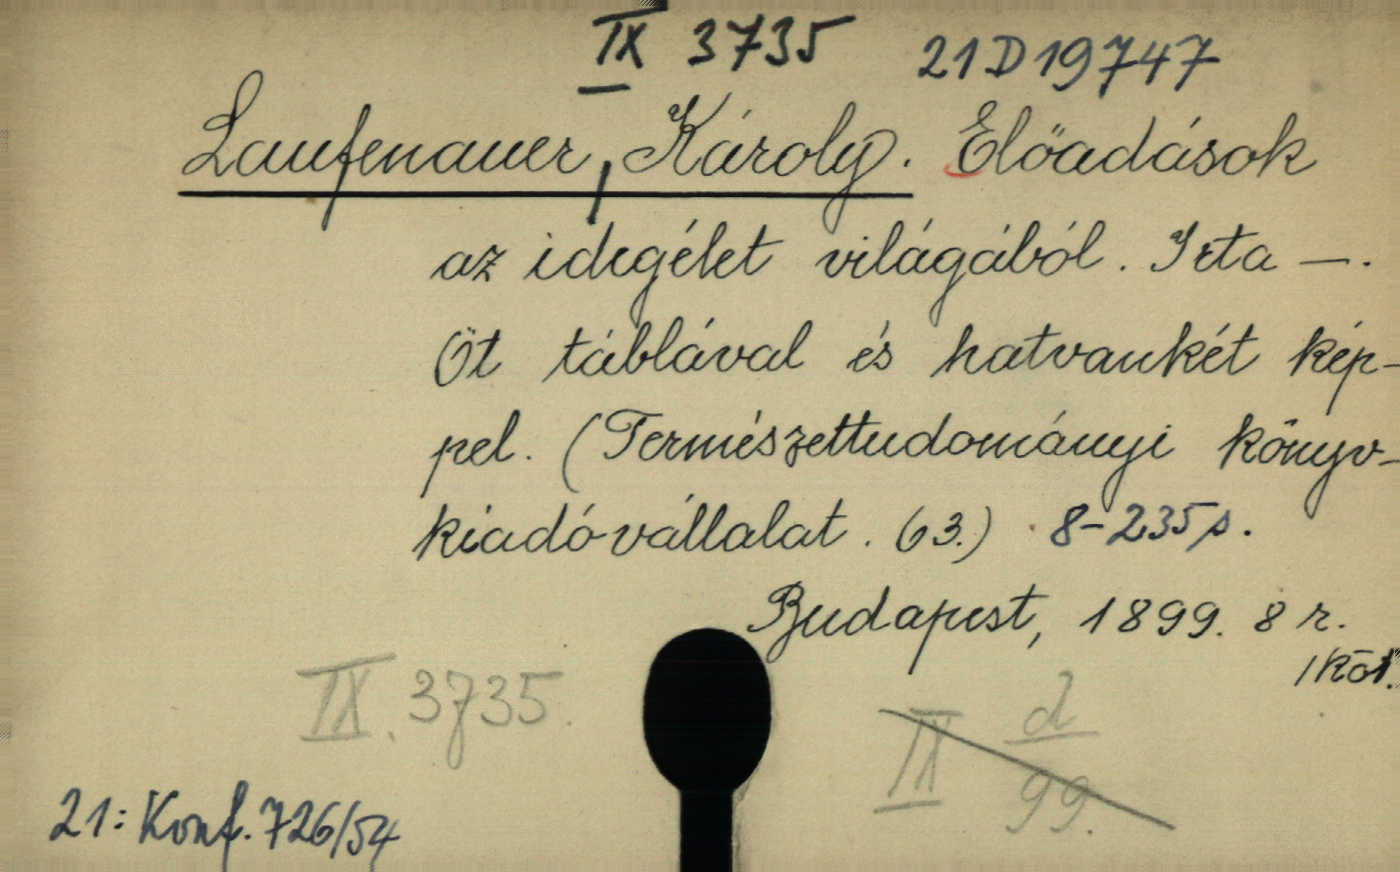 IX 3735 21 D 19747
Laufenauer, Károly. Előadások
az idegélet világából. Irta —.
Öt táblával és hatvankét kép-
pel. (Természettudományi könyv-
kiadó-vállalat. 63.) 8-235 s.
Budapest, 1899. 8 r.
1 köt.
IX. 3735.
IX d/99.
21: Konf. 726/54